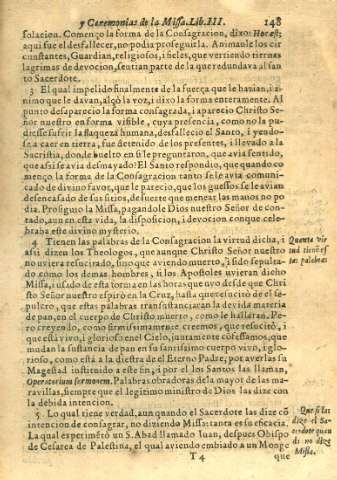 y Ceremonias de la Missa. Lib. III. 148
solacion. Començo la forma de la Consagracion, dixo: Hoc est;
aqui fue el desfallecer, no podia proseguirla. Animanle los cir
cunstantes, Guardian, religiosos, i fieles, que vertiendo tiernas
lagrimas de devocion, sentian parte de la que redundava al san
to Sacerdote.
3 El qual impelido finalmente de la fuerça que le hazian, i a-
nimo que le davan, alçò la voz, i dixo la forma enteramente. Al
punto desaparecio la forma consagrada, i aparecio Christo Se-
ñor nuestro en forma visible, cuya presencia, como no la pu-
diesse sufrir la flaqueza humana, desfallecio el Santo, i yendo-
se a caer en tierra, fue detenido de los presentes, i llevado a la
Sacristia, donde buelto en si le preguntaron, que avia sentido,
que assi se avia desmayado? El Santo respondio, que quando co
menço la forma de la Consagracion tanto se le avia comuni-
cado de divino favor, que le parecio, que los guessos se le avian
desencasado de sus sitios, de suerte que menear las manos no po
dia. Prosiguio la Missa, pagandole Dios nuestro Señor de con-
tado, aun en esta vida, la disposicion, i devocion con que cele-
braba este divino mysterio.
4 Tienen las palabras de la Consagracion la virtud dicha, i
assi dizen los Theologos, que aunque Christo Señor nuestro
no uviera resucitado, sino que aviendo muerto, i sido sepulta-
do como los demas hombres, si los Apostoles uvieran dicho
Missa, i usado de esta forma en las horas que uvo desde que Chris
to Señor nuestro espirò en la Cruz, hasta que resucitò de el se-
pulcro, que estas palabras transustanciaran la devida materia
de pan, en el cuerpo de Christo muerto, como le hallaran. Pe-
ro creyendo, como firmissimamente creemos, que resucitò, i
que està vivo, i glorioso en el Cielo, juntamente cõfessamos, que
mudan la sustancia de pan en su santissimo cuerpo vivo, i glo-
rioso, como està a la diestra de el Eterno Padre, por averlas su
Magestad instituido a este fin, i por el los Santos las llaman,
Operatorium sermonem. Palabras obradoras de la mayor de las ma-
ravillas, siempre que el legitimo ministro de Dios las dize con
la debida intencion.
5 Lo qual tiene verdad, aun quando el Sacerdote las dize cõ
intencion de consagrar, no diziendo Missa: tanta es su eficacia.
La qual experimẽtò un S. Abad llamado Iuan, despues Obispo
de Cesarea de Palestina, el qual aviendo embiado a un Monge
T 4 que
Quanta vir
tud tiene est
tas palabras
Que si las
dize el Sa-
cerdote quan
di no dize
Missa.